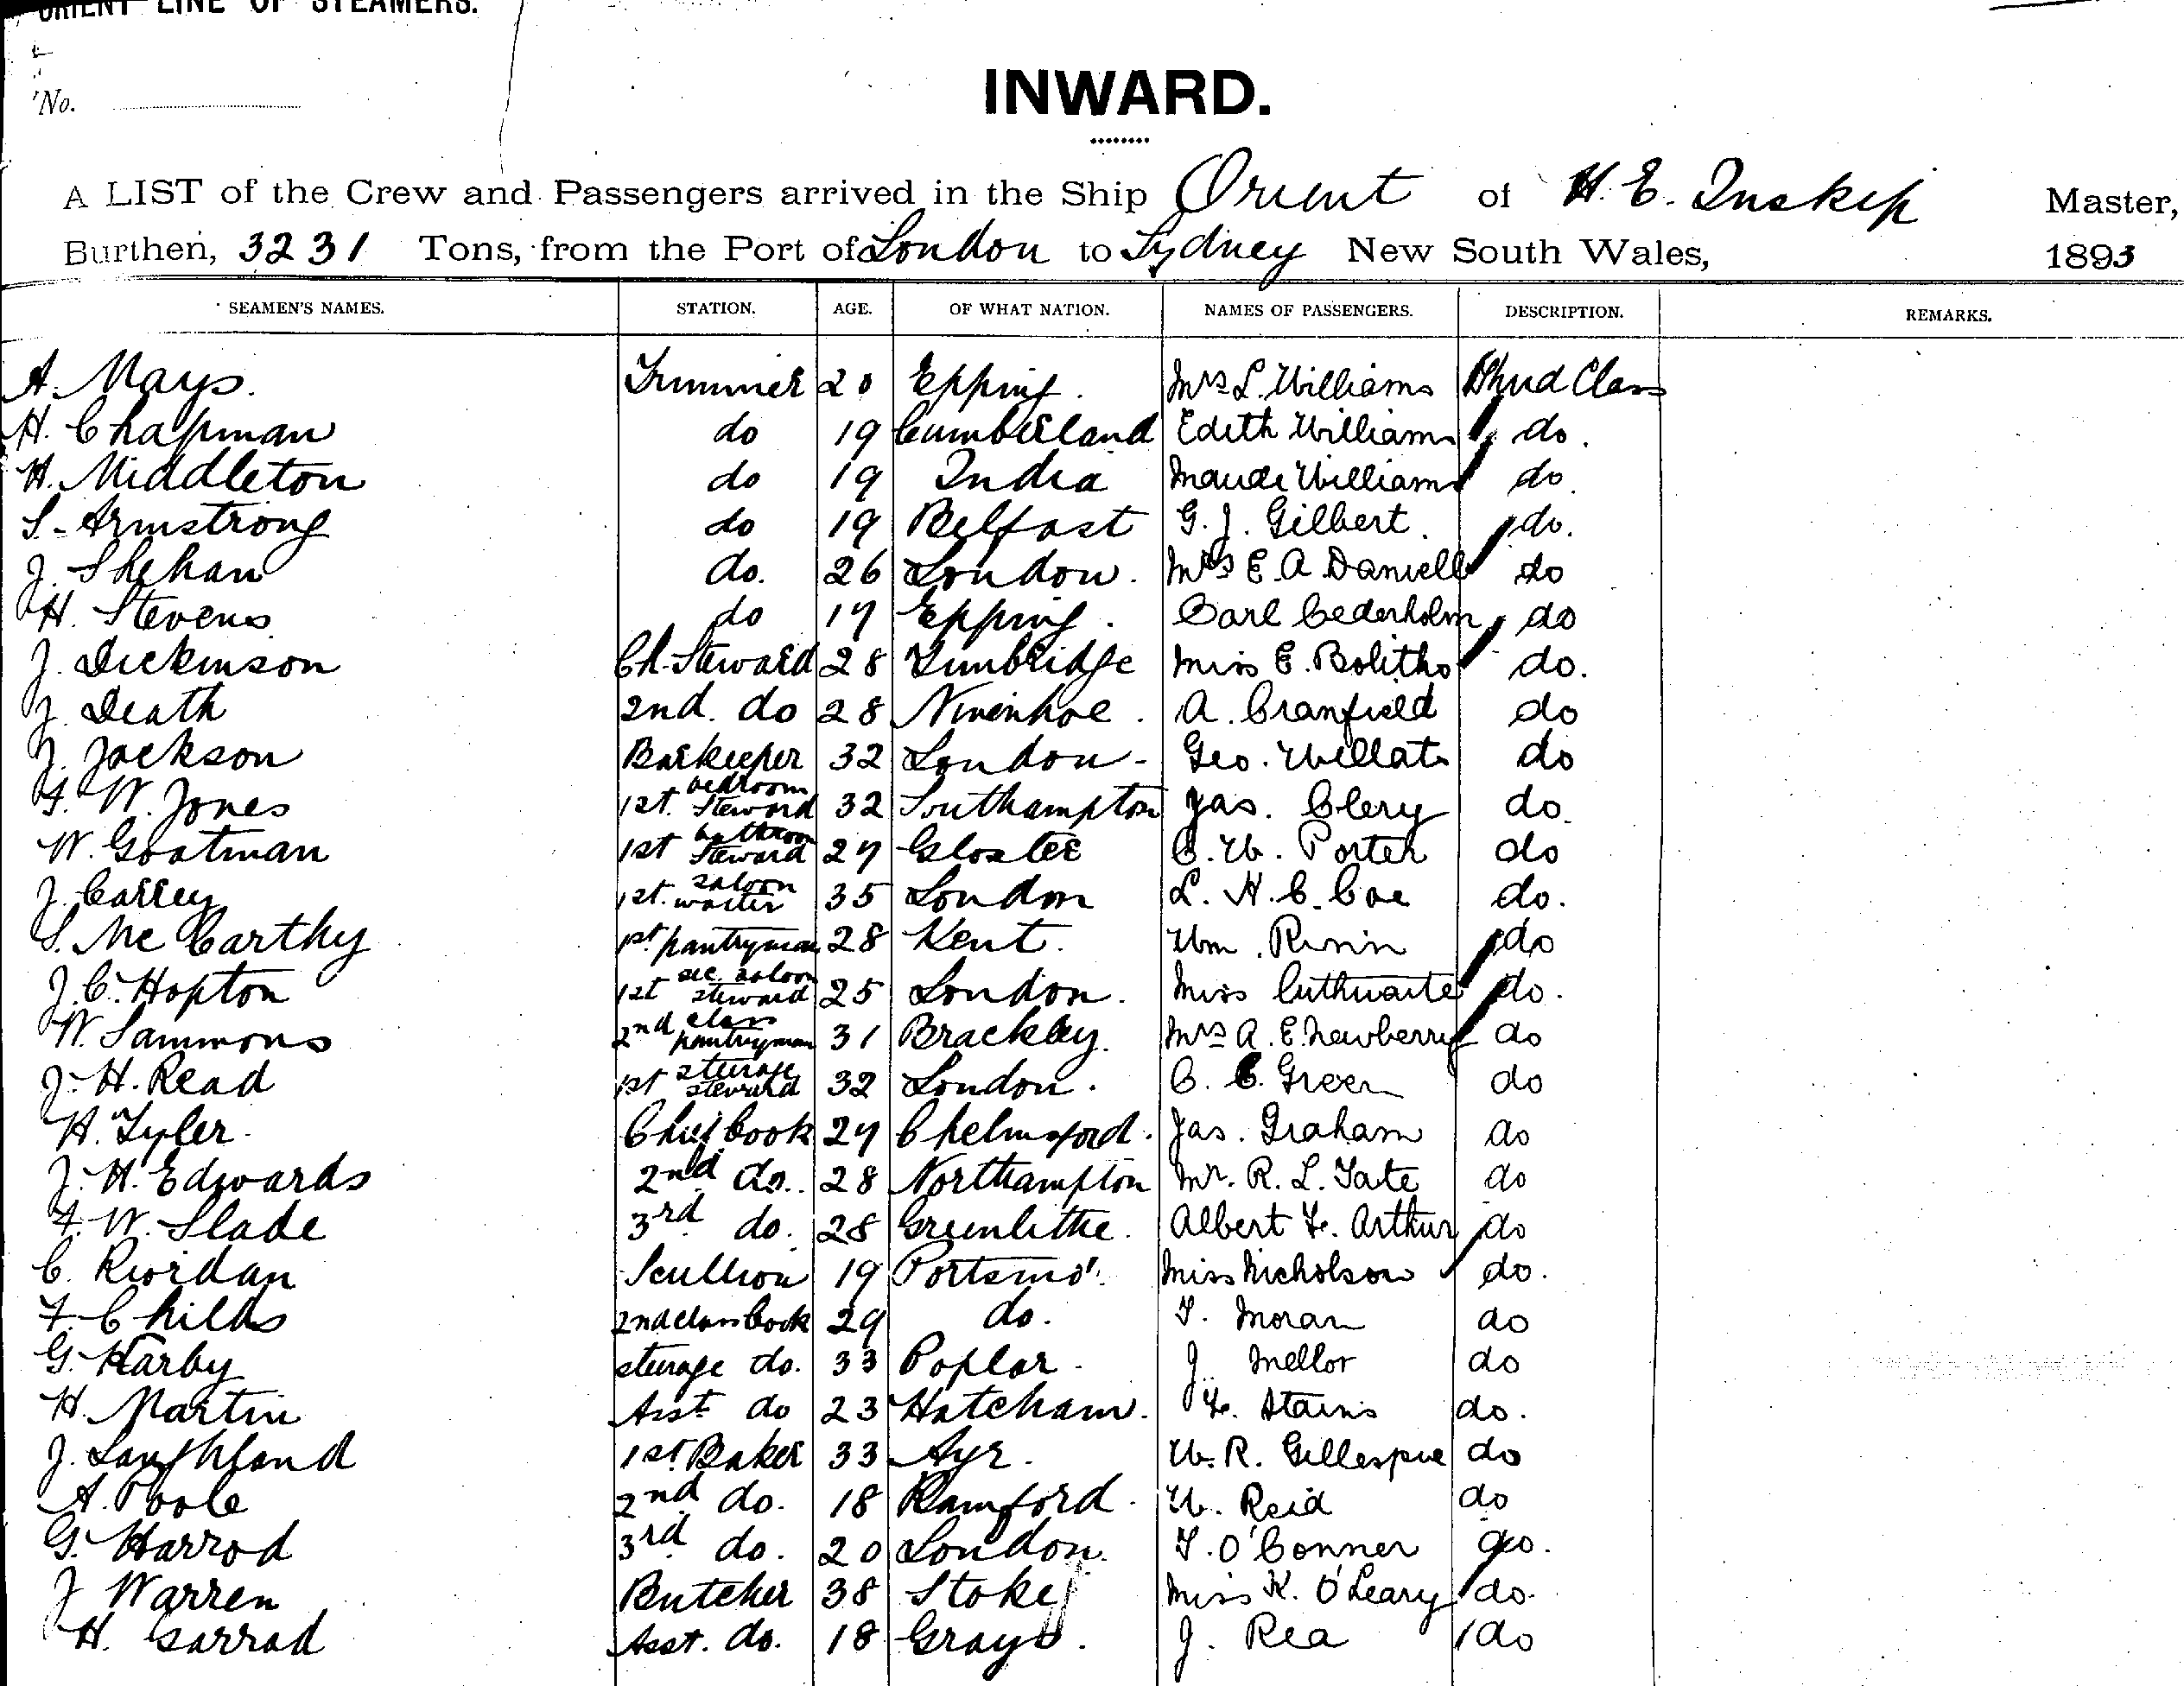 ORIENT LINE OF STEAMERS.
No.
INWARD.
A LIST of the Crew and Passengers arrived in the Ship Orient of H. E. Inskip Master,
Burthen, 3231 Tons, from the Port of London to Sydney New South Wales, 1893
SEAMEN'S NAMES. STATION. AGE. OF WHAT NATION. NAMES OF PASSENGERS. DESCRIPTION. REMARKS.
A. Mays. Trimmer 20 Epping. Mrs L. Williams Third Class
H. Chapman do 19 Cumberland Edith Williams do.
H. Middleton do 19 India Maude Williams do.
S. Armstrong do 19 Belfast G. J. Gilbert. do.
J. Shehan do. 26 London. Mrs E. A. Daniell do
H. Stevens do 17 Epping. Carl Cederholm do
J. Dickinson Ch. Steward 28 Tunbridge Miss E. Bolitho do.
J. Death 2nd. do 28 Nivenhoe. A. Cranfield do
J. Jackson Barkeeper 32 London - Geo. Willats do
F. W. Jones 1st. bedroom Steward 32 Southampton Jas. Clery do.
W. Goatman 1st bathroom Steward 27 Gloster C. W. Porter do
J. Carrey 1st. saloon waiter 35 London L. H. C. Coe do.
S. Mc Carthy 1st. pantryman 28 Kent. Wm. do
J. C. Hopton 1st sec. saloon steward 25 London. Miss Cuthwaite do.
W. Sammons 2nd class pantryman 31 Brackley. Mrs A. E. Newberry do
J. H. Read 1st steerage steward 32 London. C. C. Green do
H. Tyler. Chief Cook 27 Chelmsford. Jas. Graham do
J. H. Edwards 2nd do. 28 Northampton Mr. R. L. Tate do
F. W. Slade 3rd do. 28 Greenlithe. Albert F. Arthur do
C. Riordan Scullion 19 Portsmo'. Miss Nicholson do.
F. Childs 2nd class Cook 29 do. T. Moran do
G. Harby steerage do. 33 Poplar. J. Mellor do
H. Martin Asst. do 23 Hatcham. F. Stains do.
J. Laughland 1st. Baker 33 Ayr. W. R. Gillespie do
A. Poole 2nd do. 18 Ramford. W. Reid do
G. Harrod 3rd do. 20 London. T. O'Conner do.
J Warren Butcher 38 Stoke Miss K. O'Leary do.
H. Garrad Asst. do. 18 Grays. J. Rea do